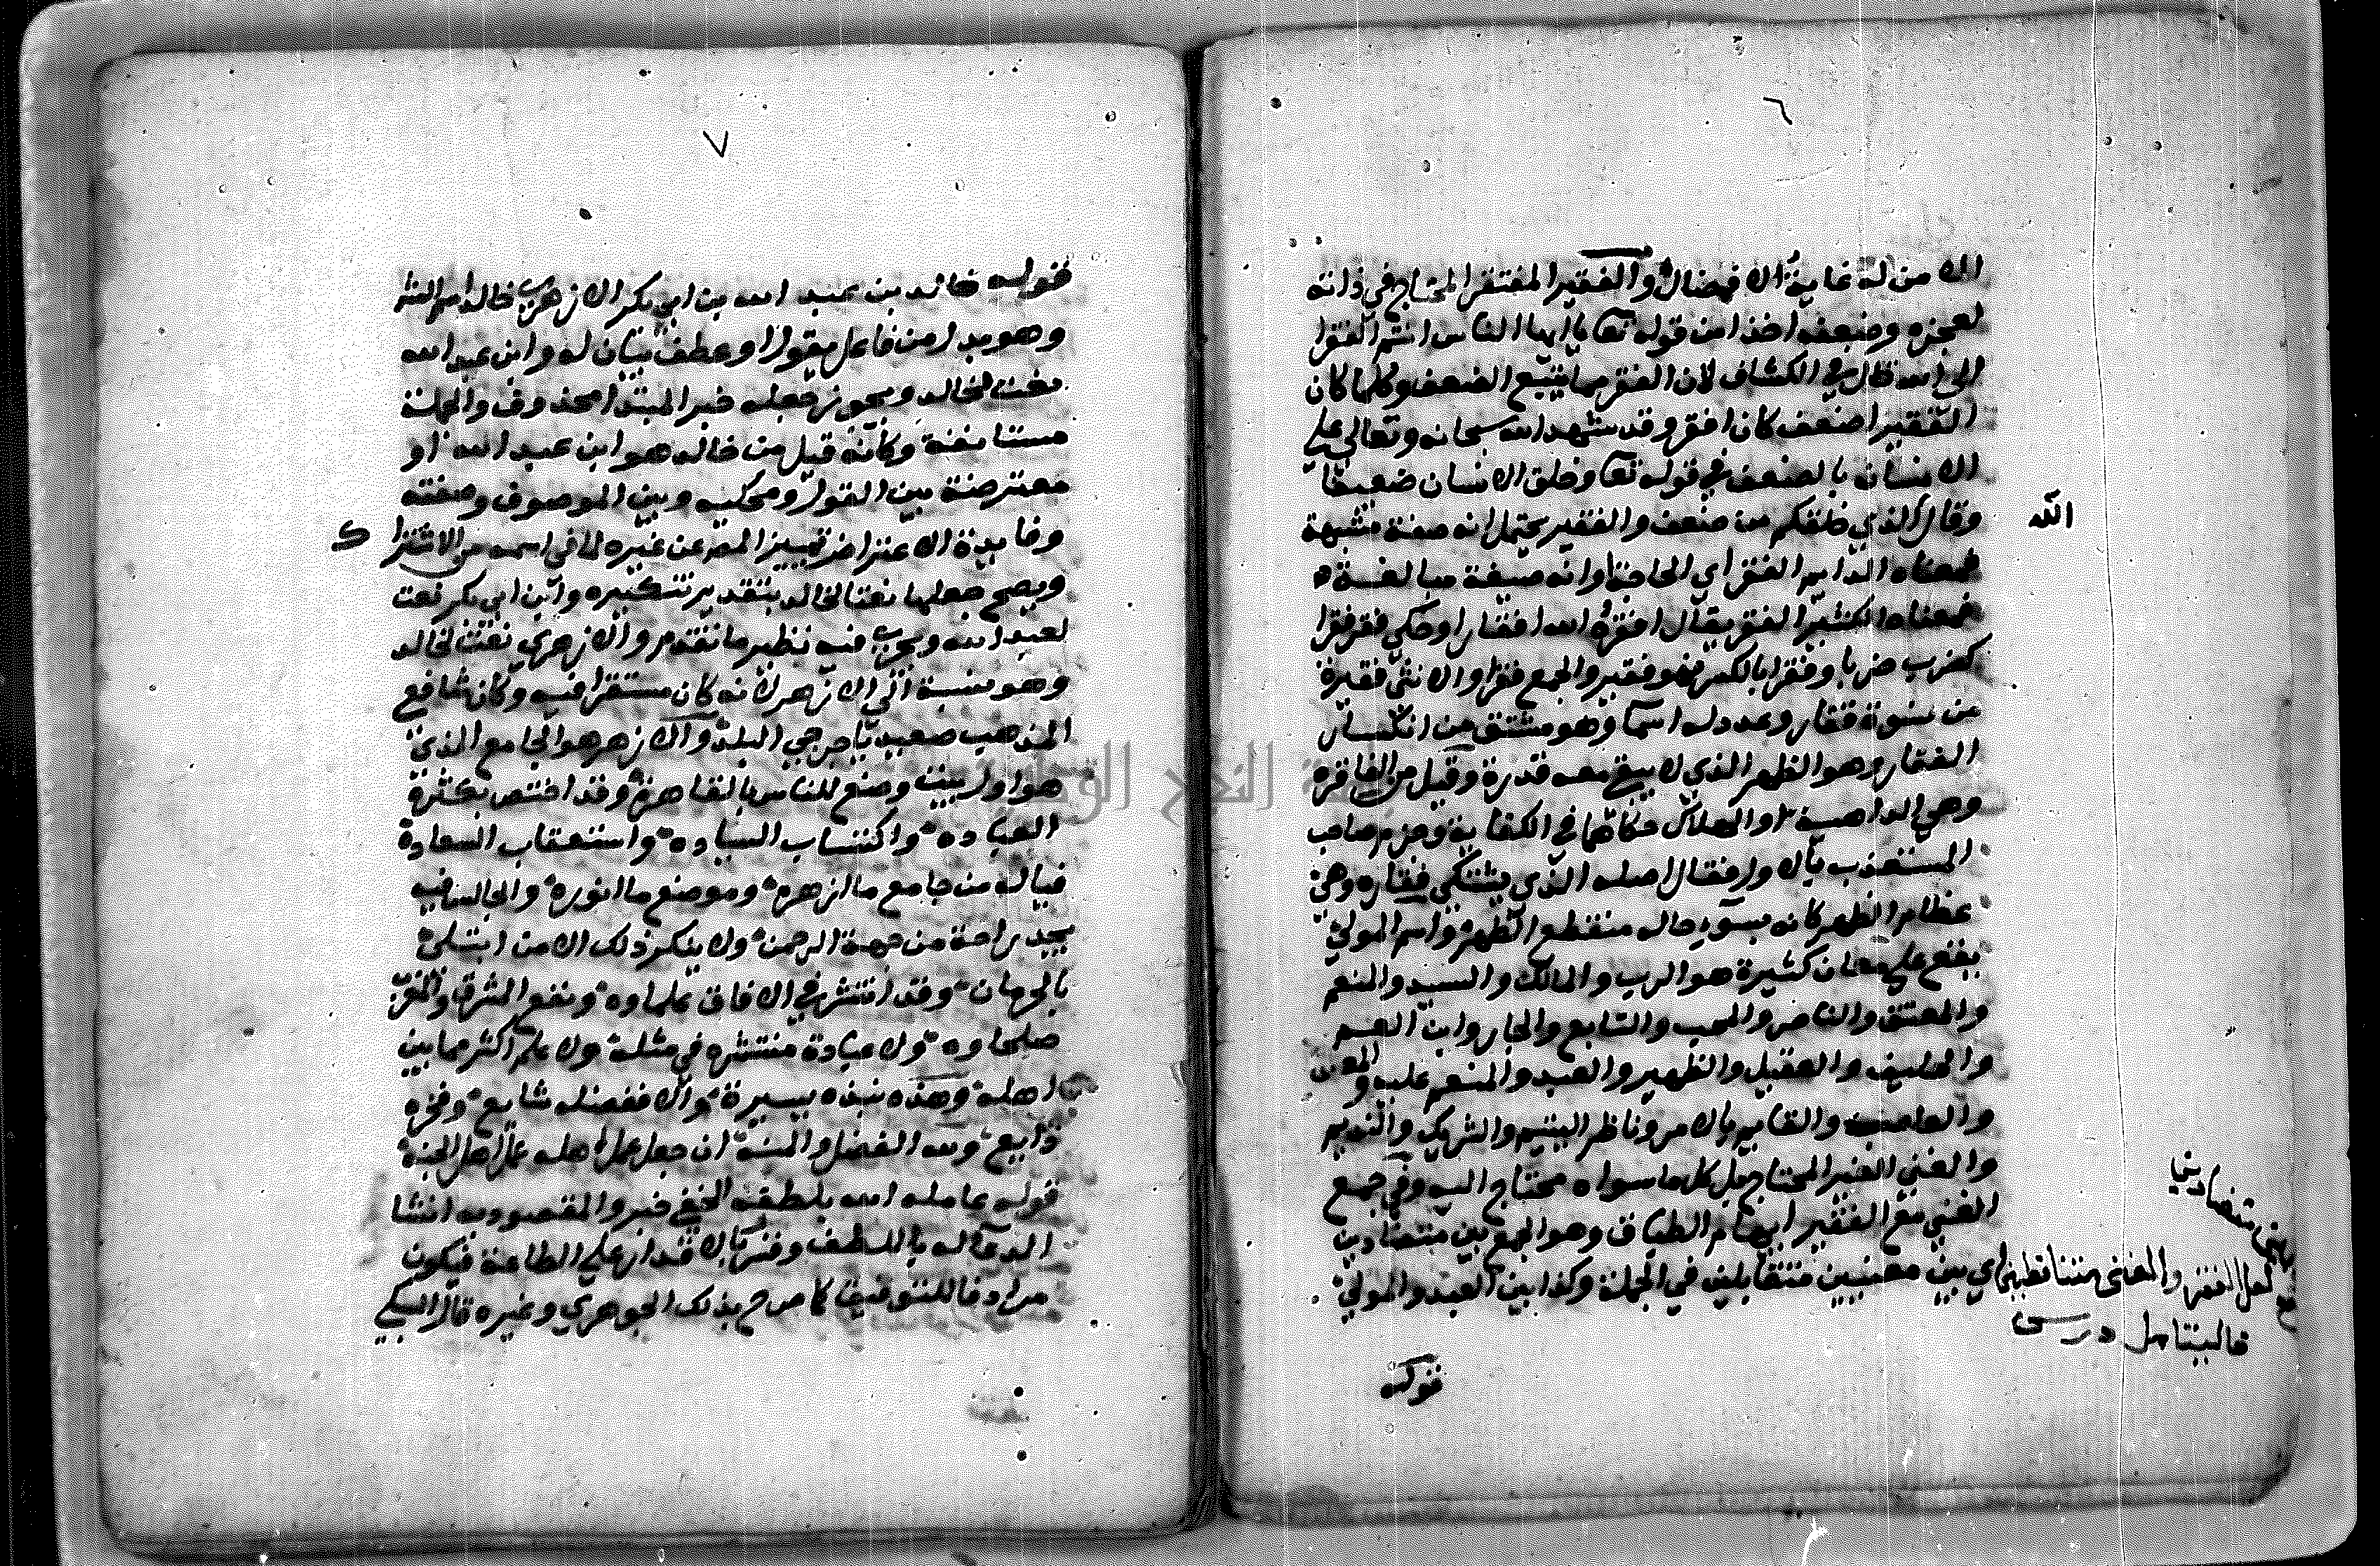 ٦
الا من له غاية الافضال والفقير المفتقر المحتاج في ذاته
لعجزه وضعفه اخذا من قوله تعا يا ايها الناس انتم الفقرا
الى الله قال في الكشاف لان الفقر مما يتبع الضعف وكلما كان
الفقير اضعف كان افقر وقد شهد الله سبحانه وتعالى على
الانسان بالضعف في قوله تعا وخلق الانسان ضعيفا
وقال الذي خلقكم من ضعف والفقير يحتمل انه صفة مشبهة
الله
فمعناه الدايم الفقر اي الحاجة او انه صيغة مبالغة
فمعناه الكثير الفقر يقال افقره الله افقارا وحكي فقر فقرا
كضرب ضربا وفقرا بالكسر فهو فقير والجمع فقرا والانثى فقيرة
من نسوة فقار وعدد له اسما وهو مشتق من انكسار
الفقار وهو الظهر الذي لا يبقى معه قدرة وقيل من الفاقره
وهي الداهية او الهلاك حكاهما في الكفاية وجزم صاحب
المستعذب بالاول فقال اصله الذي يشتكي فقاره وهي
عظام الظهر كانه بسوء حاله منقطع الظهر واسم المولى
يقع على معان كثيرة هو الرب والمالك والسيد والمنعم
والمعتق والناصر والمحب والتابع والجار وابن العم
والحليف والعقيل والظهير والعبد والمنعم عليه و المعتق
والصاحب والقايم بالامر وناظر اليتيم والشريك والنديم
والغني الغير المحتاج بل كل ما سواه محتاج اليه وفي جمع
الغني مع الفقير ايهام الطباق وهو الجمع بين متضادين
اي بين معنيين متقابلين في الجملة وكذا بين العبد والمولى
لعل الفقر والغنى متناقضين
متضادين
فاليتامل
قوله
٧
قوله خالد بن عبد الله بن ابي بكر الازهري خالد اسم الش
وهو بدل من فاعل يقول او عطف بيان له وابن عبد الله
نعت لخالد ويجوز جعله خبر المبتدا محذوف والجملة
مستانفة وكانه قيل من خالد هو ابن عبد الله او
معترضة بين القول ومحكيه وبين الموصوف وصفته
وفايدة الاعتراض تمييز المص عن غيره لما في اسمه من الاشترا ك
ويصح جعلها نعتا لخالد بتقدير تنكيره وابن ابي بكر نعت
لعبد الله ويجري فيه نظير ما تقدم والازهري نعت لخالد
وهو نسبة الى الازهر لانه كان مستقرا فيه وكان شافع
المذهب صعيديا جرجي البلد والازهر هو الجامع الذي
هو اول بيت وضع للناس بالقاهرة وقد اختص بكثرة
العباده واكتساب السياده واستعقاب السعادة
فياله من جامع ما ازهره وموضع ما انوره والجالس فيه
يجد راحة من جهة الرحمن ولا ينكر ذلك الا من ابتلى
بالحرمان وقد انتشر في الافاق علماوه ونفع المشرق والمغرب
صلحاوه ولا عبادة منتشره في مثله ولا علم اكثر مما بين
اهله وهذه نبذه يسيرة والا ففضله شايع وفخره
ذايع ولله الفضل والمنه ان جعل عمل اهله عمل اهل الجنة
قوله عامله الله بلطفه الخفي خبر والمقصود به انشا
الدعا له باللطف وفسر بالاقدار على الطاعة فيكون
مرادفا للتوفيق كما صرح بذلك الجوهري وغيره قال السبكي